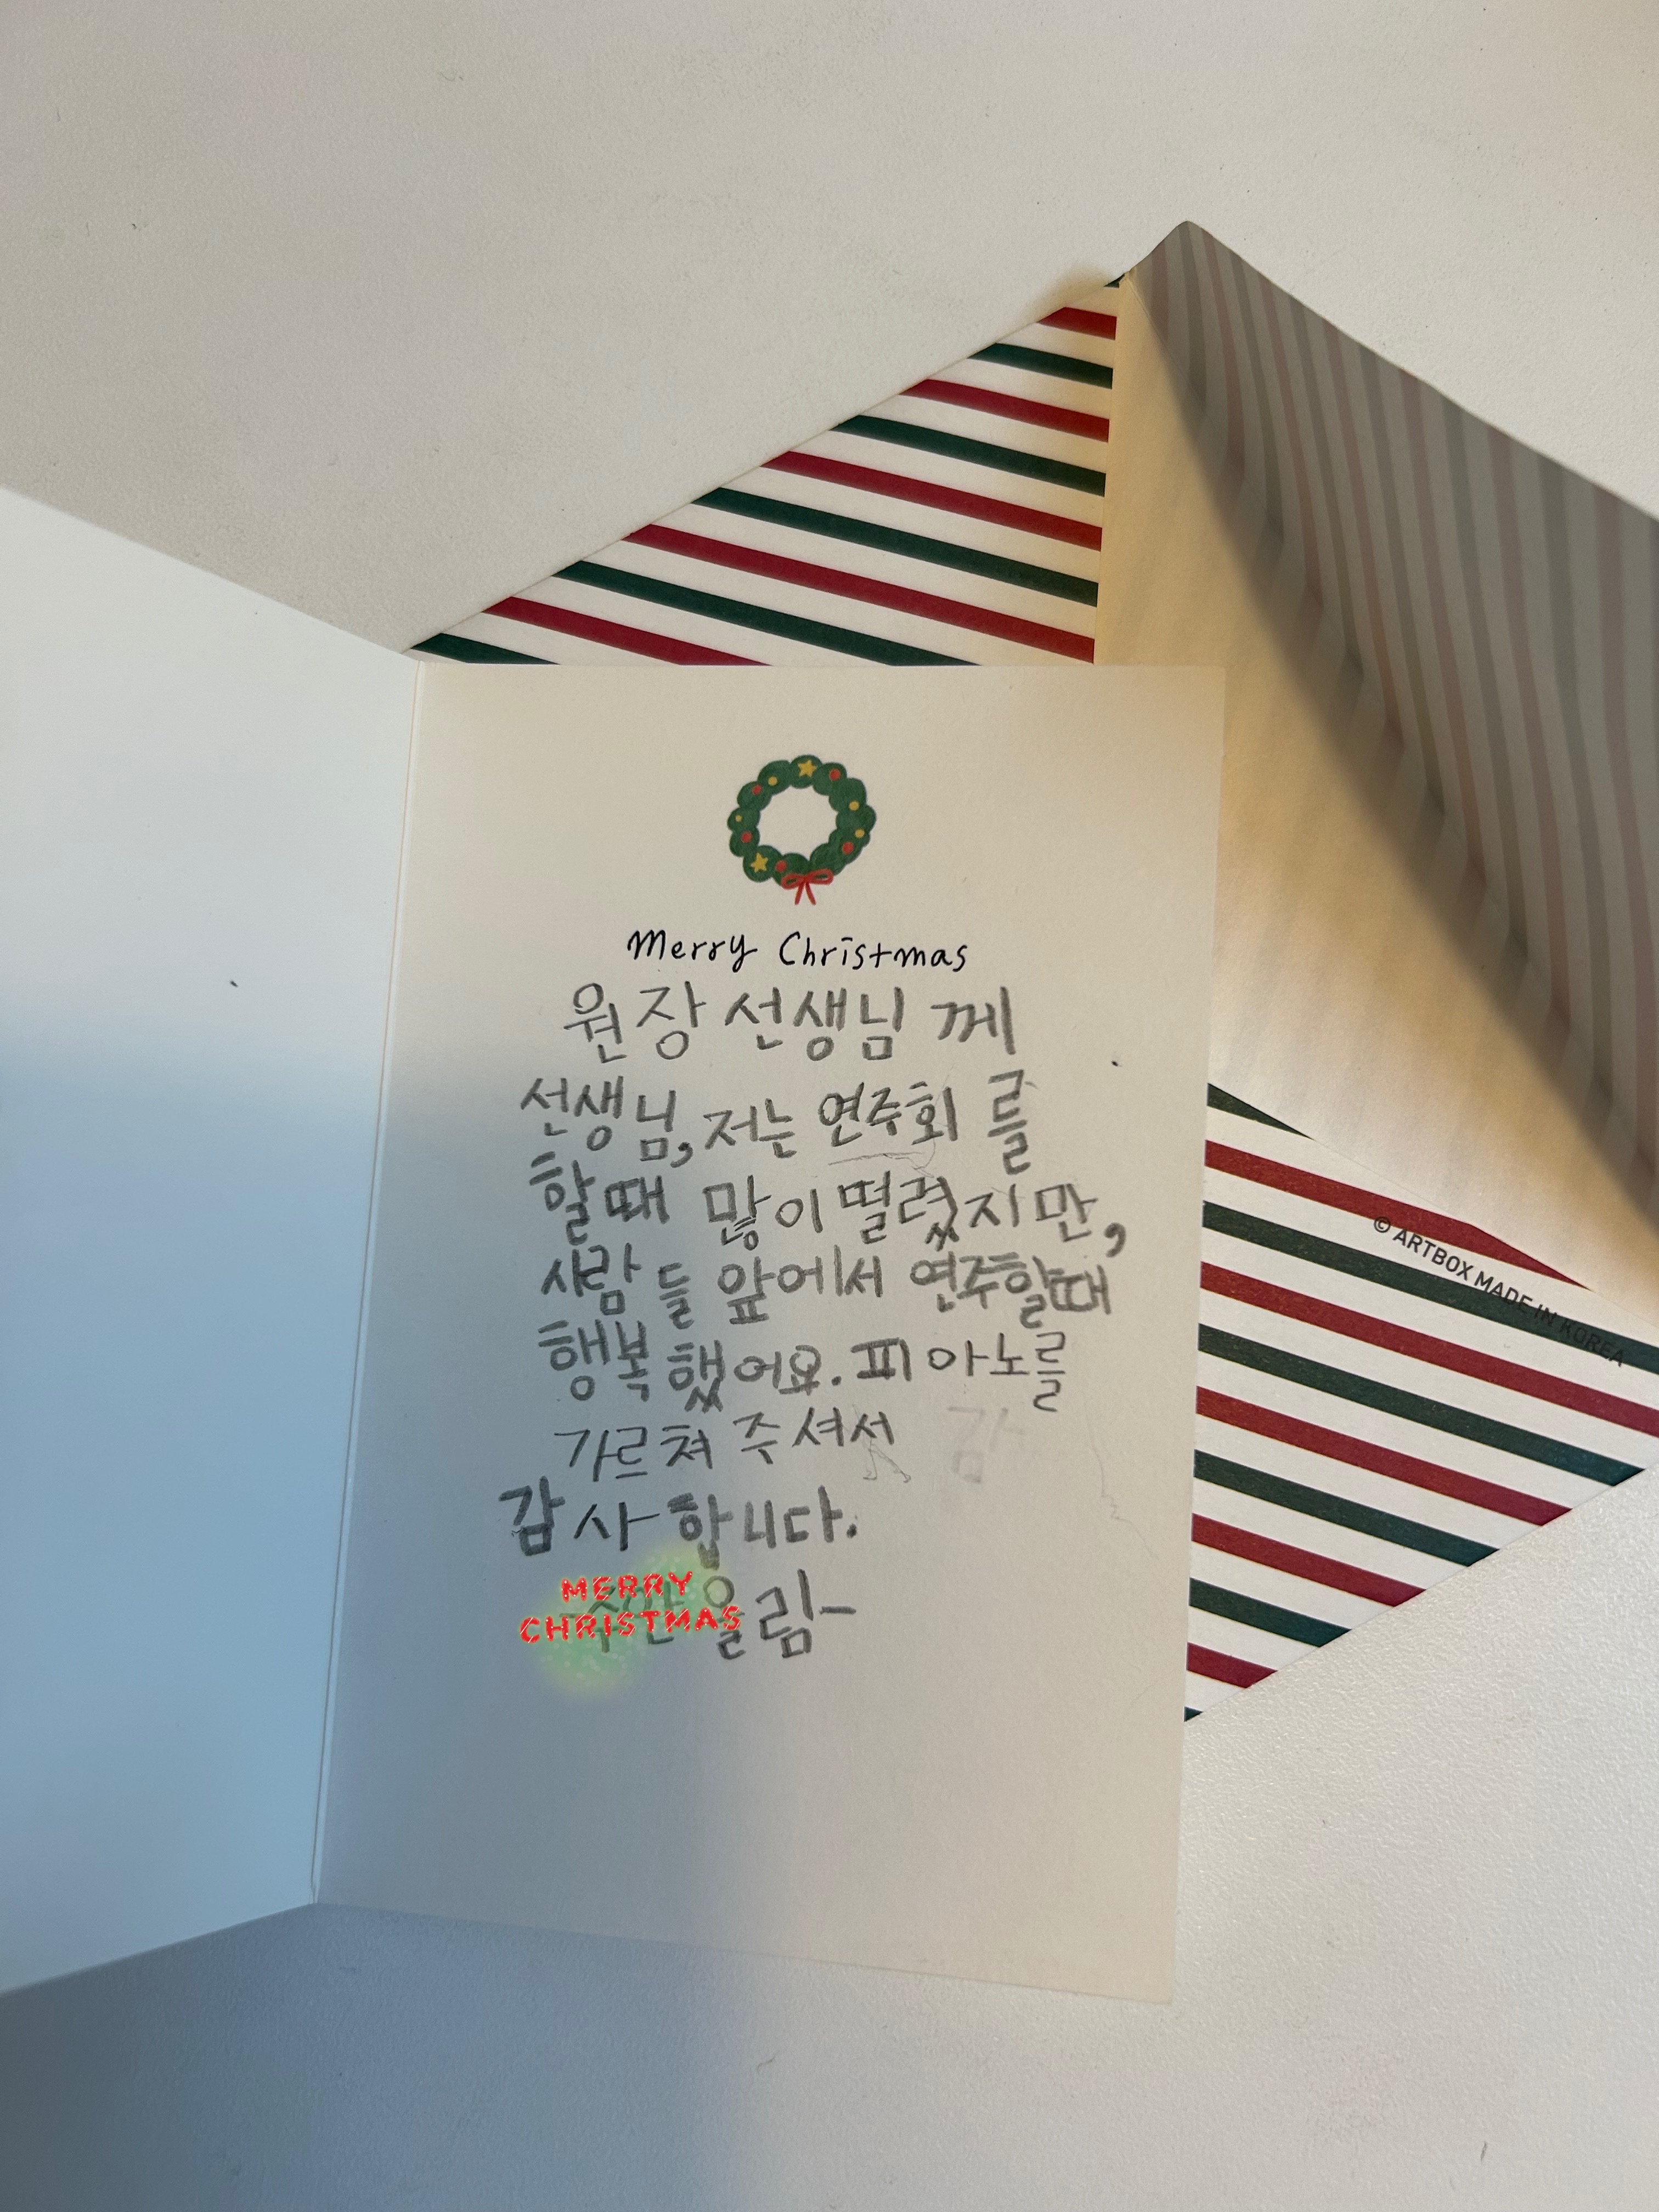 Merry Christmas
원장 선생님 께
선생님, 저는 연주회 를
할때 많이 떨렸지만,
사람들 앞에서 연주할때
행복했어요. 피아노를
가르쳐 주셔서 감
감사합니다.
MERRY
CHRISTMAS
올림-
© ARTBOX MADE IN KOREA